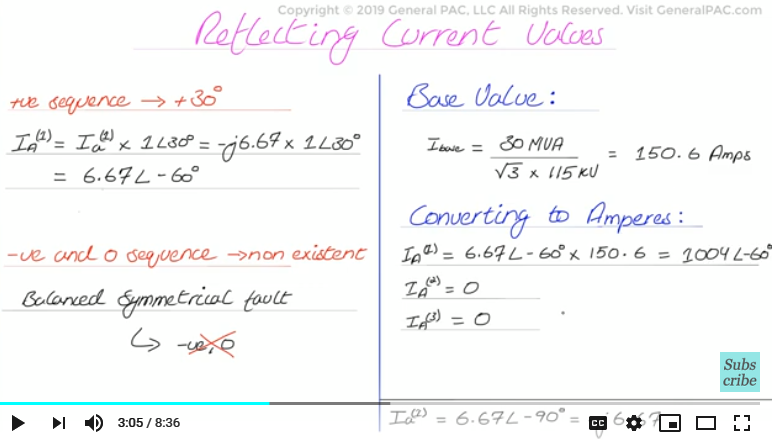 Copyright © 2019 General PAC, LLC All Rights Reserved. Visit GeneralPAC.com
Reflecting Current Values
+ve sequence → +30°
I_A^(1) = I_a^(1) × 1∠30° = -j6.67 × 1∠30°
= 6.67∠-60°
-ve and 0 sequence → non existent
Balanced Symmetrical fault
↳ -ve, 0
Base Value:
I_base = 30 MVA / √3 × 115 KV = 150.6 Amps
Converting to Amperes:
I_A^(1) = 6.67∠-60° × 150.6 = 1004∠-60°
I_A^(2) = 0
I_A^(3) = 0
Subs
cribe
I_a^(1) = 6.67∠-90° = -j6.67
3:05 / 8:36
CC